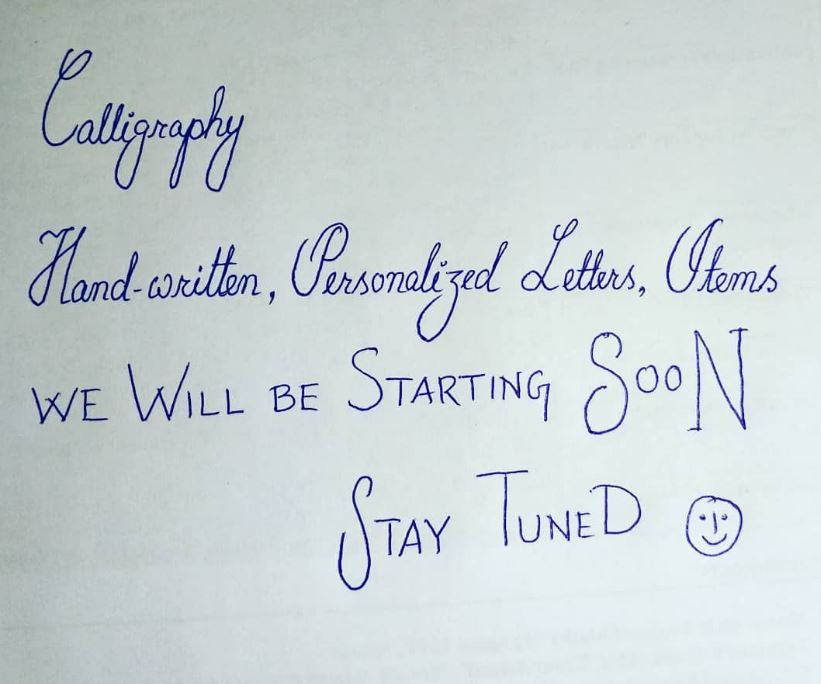 Calligraphy
Hand-written, Personalized Letters, Items
WE WILL BE STARTING SOON
STAY TUNED